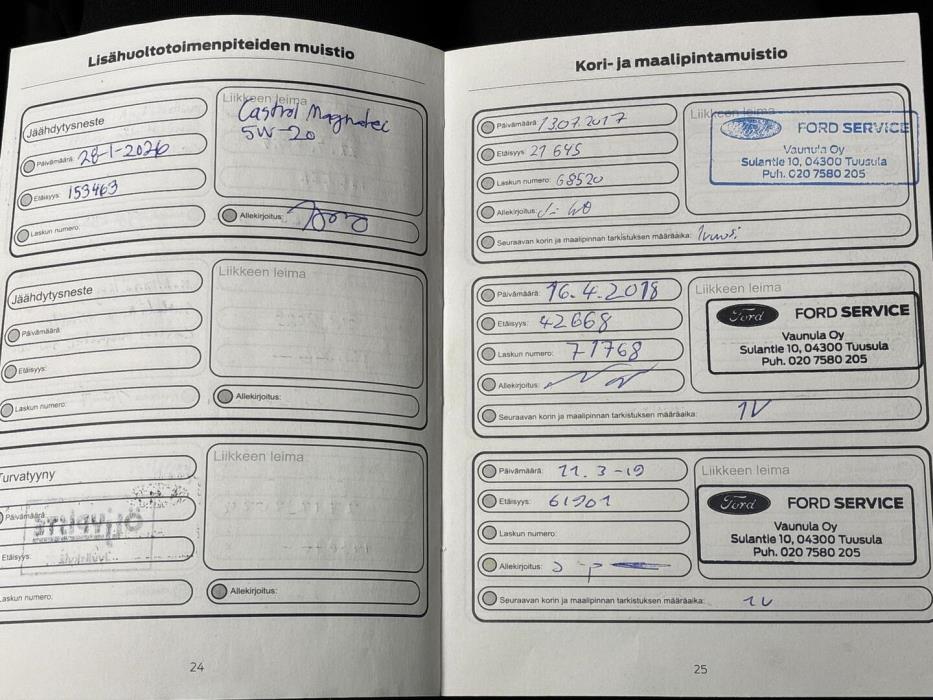 Lisähuoltotoimenpiteiden muistio
Jäähdytysneste
Päivämäärä: 28-1-2026
Etäisyys: 153463
Laskun numero:
Liikkeen leima
Castrol Magnatec
5W-20
Allekirjoitus:
Jäähdytysneste
Päivämäärä:
Etäisyys:
Laskun numero:
Liikkeen leima
Allekirjoitus:
Turvatyyny
Päivämäärä:
Etäisyys:
Laskun numero:
Liikkeen leima
Allekirjoitus:
24
Kori- ja maalipintamuistio
Päivämäärä: 13.07.2017
Etäisyys: 21645
Laskun numero: 68520
Allekirjoitus:
Seuraavan korin ja maalipinnan tarkistuksen määräaika: 1vuosi
Liikkeen leima
Ford
FORD SERVICE
Vaunula Oy
Sulantie 10, 04300 Tuusula
Puh. 020 7580 205
Päivämäärä: 16.4.2018
Etäisyys: 42668
Laskun numero: 71768
Allekirjoitus:
Seuraavan korin ja maalipinnan tarkistuksen määräaika: 1V
Liikkeen leima
Ford
FORD SERVICE
Vaunula Oy
Sulantie 10, 04300 Tuusula
Puh. 020 7580 205
Päivämäärä: 21.3-19
Etäisyys: 61901
Laskun numero:
Allekirjoitus:
Seuraavan korin ja maalipinnan tarkistuksen määräaika: 1V
Liikkeen leima
Ford
FORD SERVICE
Vaunula Oy
Sulantie 10, 04300 Tuusula
Puh. 020 7580 205
25